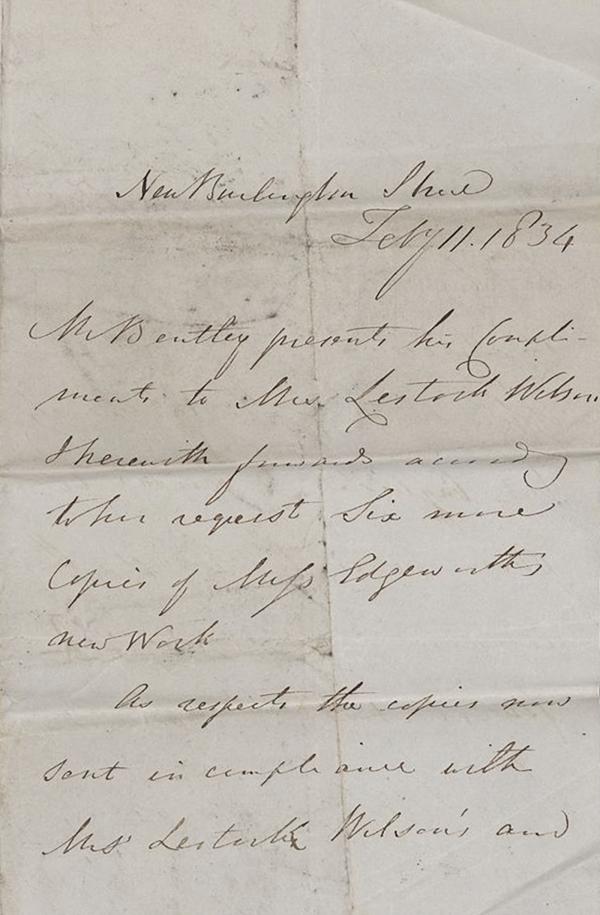 New Burlington Street
Feby 11. 1834
Mr Bentley presents his Compli-
ments to Mrs. Lestock Wilson
& herewith forwards according
to her request Six more
Copies of Miss Edgeworths
new Work
As respects the copies now
sent in compliance with
Mrs Lestock Wilson's and